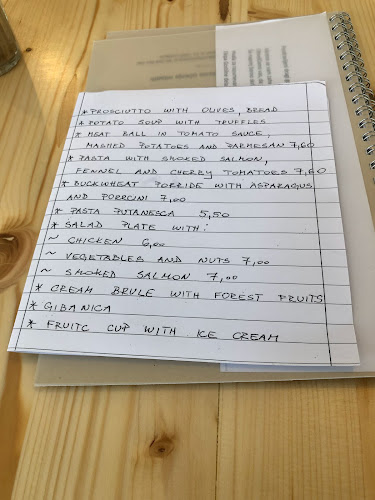 * PROSCIUTTO WITH OLIVES, BREAD
* POTATO SOUP WITH TRUFFLES
* MEAT BALL IN TOMATO SAUCE,
MASHED POTATOES AND PARMESAN 7,60
* PASTA WITH SMOKED SALMON,
FENNEL AND CHERRY TOMATOES 7,60
* BUCKWHEAT PORRIDE WITH ASPARAGUS
AND PORCINI 7,00
* PASTA PUTANESCA 5,50
* SALAD PLATE WITH:
~ CHICKEN 6,00
~ VEGETABLES AND NUTS 7,00
~ SMOKED SALMON 7,00
* CREAM BRULE WITH FOREST FRUITS
* GIBANICA
* FRUITC CUP WITH ICE CREAM